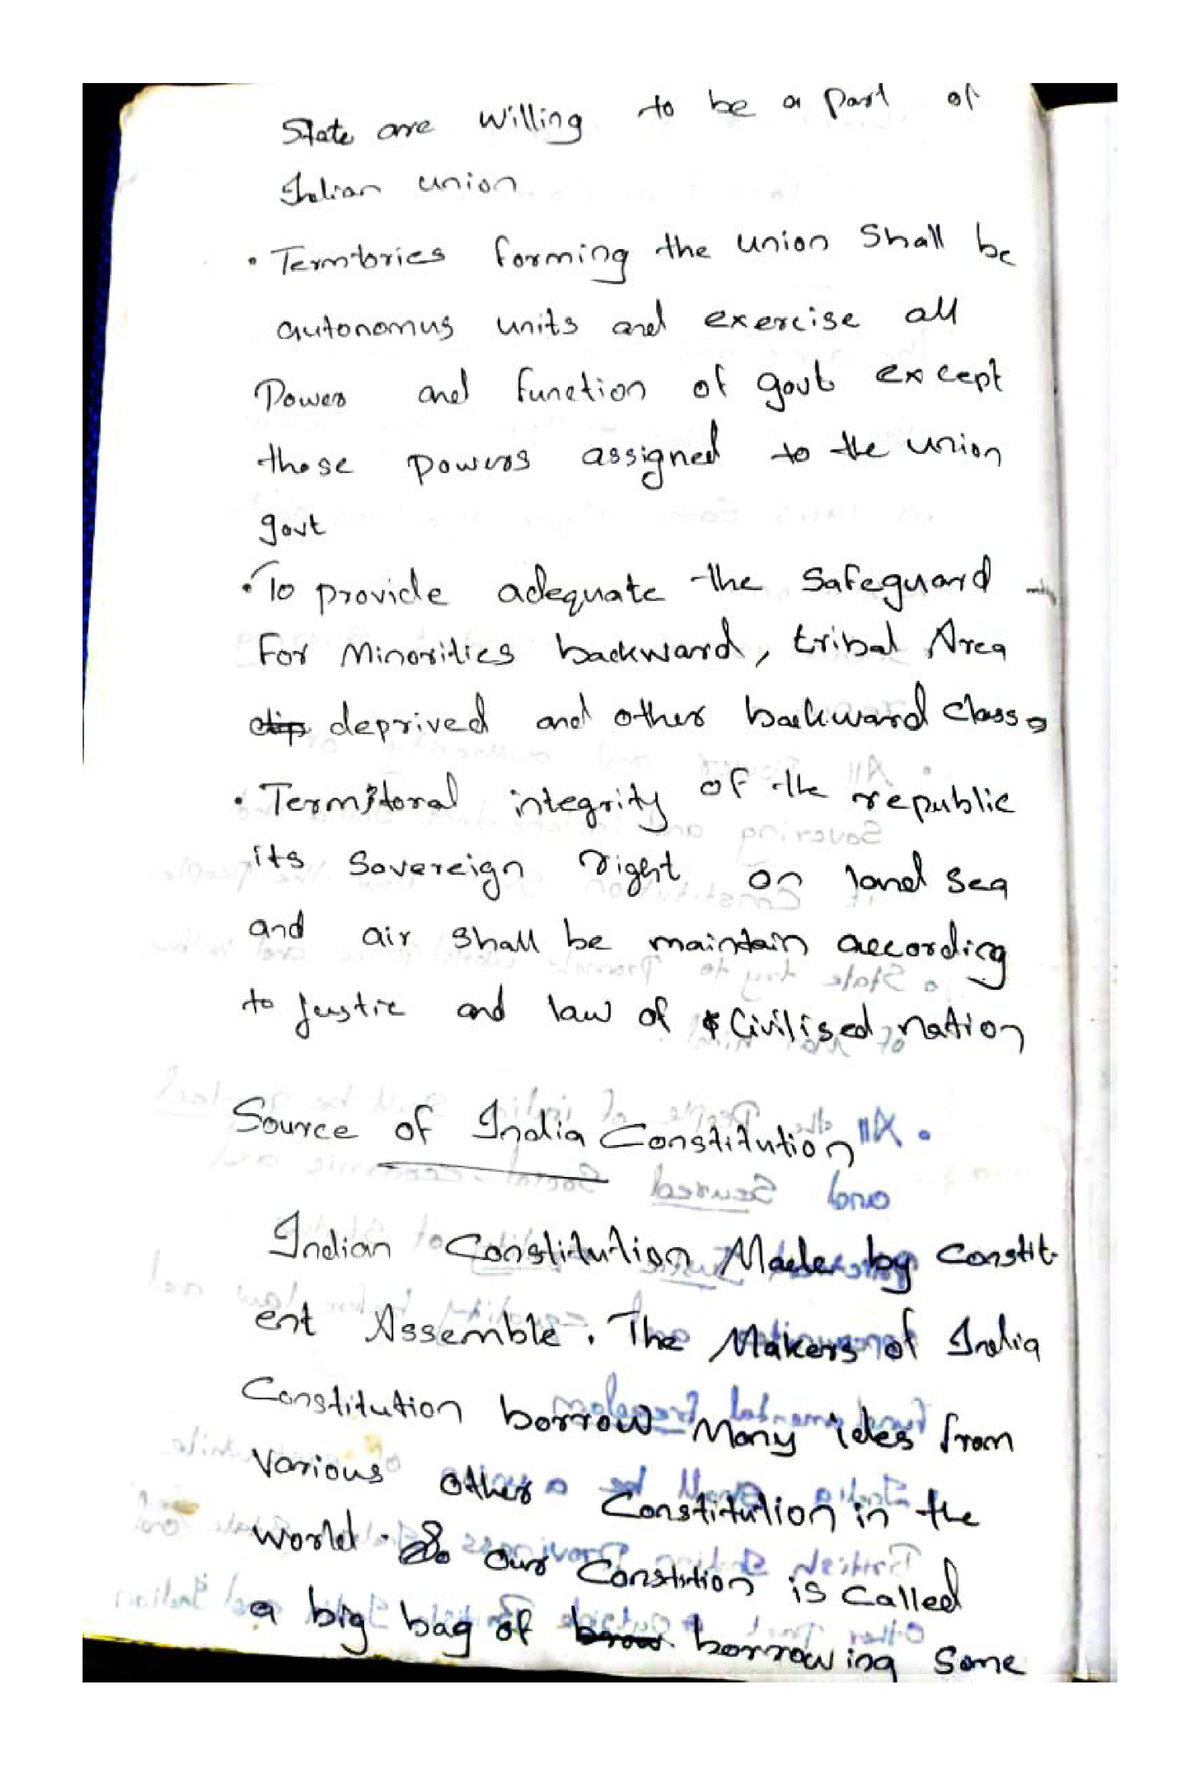 State are willing to be a part of
Indian union
• Territories forming the union shall be
autonomus units and exercise all
Power and function of govt except
those powers assigned to the union
govt
• To provide adequate the safeguard
For Minorities backward, tribal Area
deprived and other backward class
• Territoral integrity of the republic
its sovereign right on land sea
and air shall be maintain according
to justic and law of civilised nation
Source of India Constitution
Indian Constitution Made by constit-
ent Assemble. The Makers of India
Constitution borrow Many ides from
various other Constitution in the
world. So our Constition is called
a big bag of borrowing some